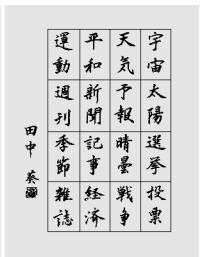 宇宙 太陽 選挙 投票
天気 予報 晴曇 戦争
平和 新聞 記事 経済
運動 週刊 季節 雑誌
田中 葵